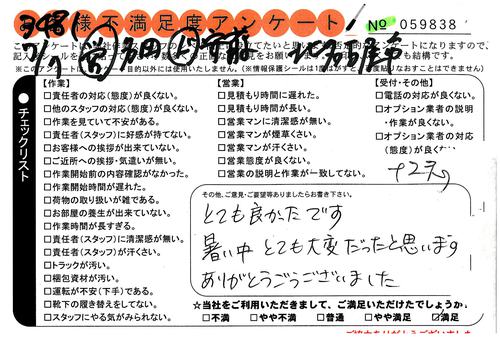 お客様不満足度アンケート
No 059838
●チェックリスト
【作業】
□責任者の対応(態度)が良くない。
□他のスタッフの対応(態度)が良くない。
□作業を見ていて不安がある。
□責任者(スタッフ)に好感が持てない。
□お客様への挨拶が出来ていない。
□ご近所への挨拶・気遣いが無い。
□作業開始前の内容確認がなかった。
□作業開始時間が遅れた。
□荷物の取り扱いが雑である。
□お部屋の養生が出来ていない。
□作業時間が長すぎる。
□責任者(スタッフ)に清潔感が無い。
□責任者(スタッフ)が汗くさい。
□トラックが汚い。
□梱包資材が汚い。
□運転が不安(下手)である。
□靴下の履き替えをしてない。
□スタッフにやる気がみられない。
【営業】
□見積もり時間に遅れた。
□見積もり時間が長い。
□営業マンに清潔感が無い。
□営業マンが煙草くさい。
□営業マンが汗くさい。
□営業態度が良くない。
□営業の説明と作業が一致してない。
【受付・その他】
□電話の対応が良くない。
□オプション業者の説明
・作業が良くない。
□オプション業者の対応
(態度)が良く
その他、ご意見・ご要望等ありましたらお書き下さい。
とても良かったです
暑い中 とても大変だったと思います
ありがとうございました
☆当社をご利用いただきまして、ご満足いただけたでしょうか
□不満 □やや不満 □普通 □やや満足 □満足